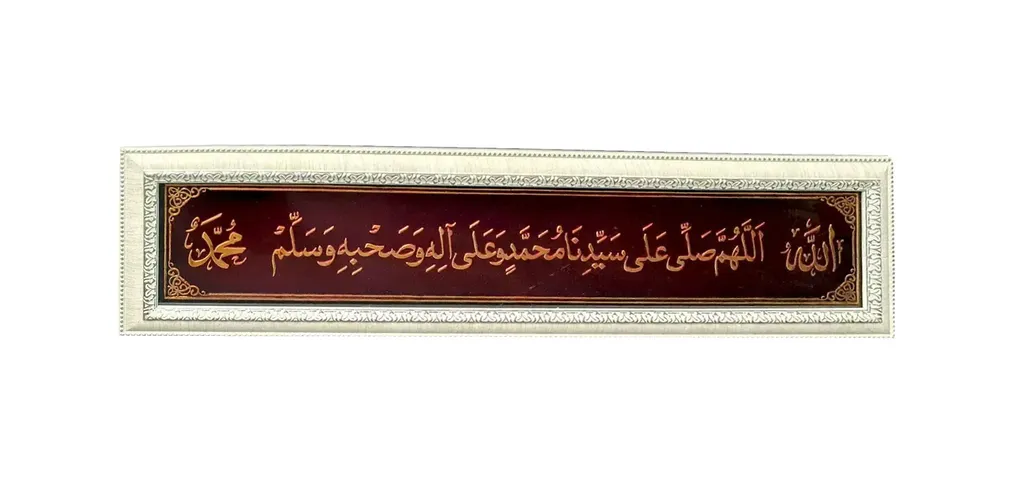 الله
اَللّٰهُمَّ صَلِّى عَلَى سَيِّدِنَا مُحَمَّدٍ وَعَلَى آلِهِ وَصَحْبِهِ وَسَلِّمْ
مُحَمَّد